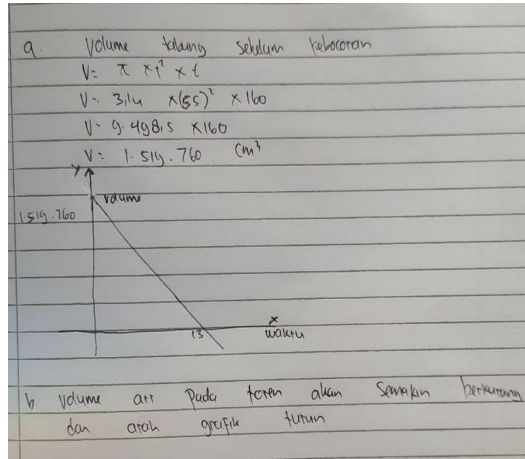 a. Volume tabung sebelum kebocoran
V = π x r² x t
V = 3,14 x (55)² x 160
V = 9.498,5 x 160
V = 1.519.760 cm³
y
volume
1.519.760
x
13
waktu
b volume air pada toren akan semakin berkurang
dan arah grafik turun